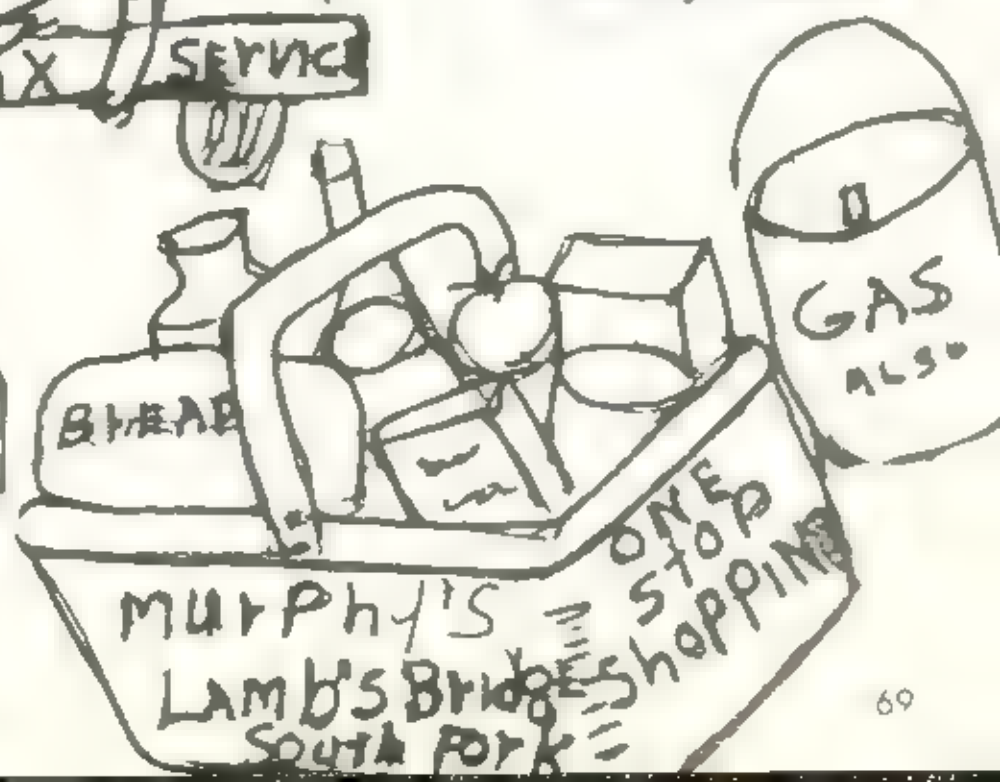 X SERVICE
GAS
ALSO
BREAD
ONE
STOP
SHOPPING
MurPhy's
LAmb's Bridge
South Fork
69